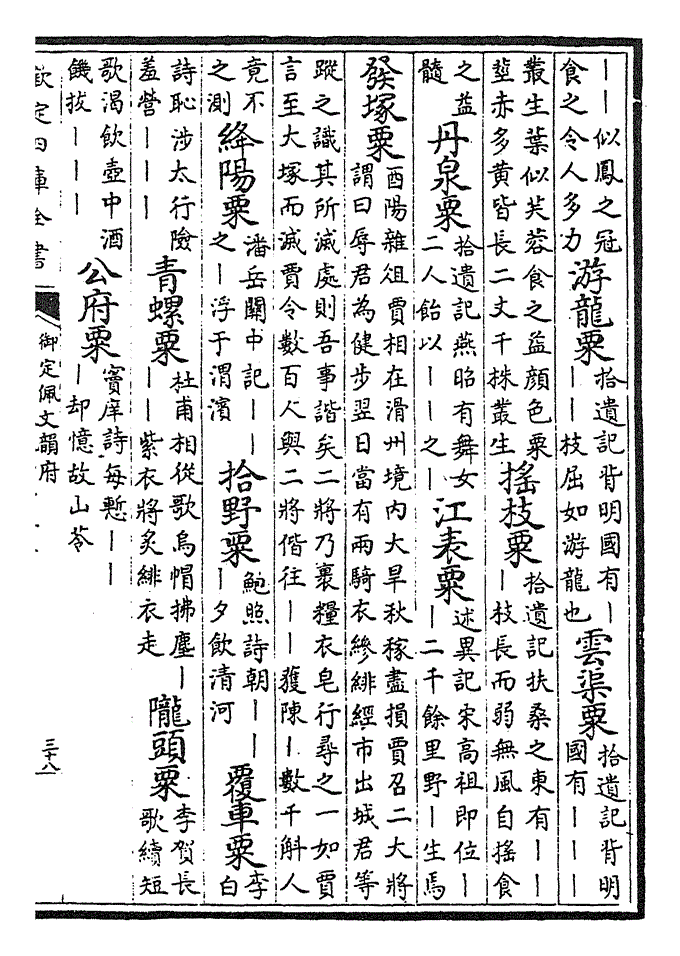 ｜｜似鳳之冠
食之令人多力
游龍粟
拾遺記背明國有｜
｜｜枝屈如游龍也
雲渠粟
拾遺記背明
國有｜｜｜
叢生葉似芙蓉食之益顔色粟
莖赤多黄皆長二丈千株叢生
搖枝粟
拾遺記扶桑之東有｜｜
｜枝長而弱無風自搖食
之益
髓
丹泉粟
拾遺記燕昭有舞女
二人飴以｜｜之｜
江表粟
述異記宋高祖即位｜
｜二千餘里野｜生焉
發塚粟
酉陽雜俎賈相在滑州境内大旱秋稼盡損賈召二大將
謂曰辱君為健步翌日當有兩騎衣縿緋經市出城君等
蹤之識其所滅處則吾事諧矣二將乃裹糧衣皂行尋之一如賈
言至大塚而滅賈令數百人與二將偕往｜｜獲陳｜數千斛人
竟不
之測
絳陽粟
潘岳關中記｜｜
之｜浮于渭濱
拾野粟
鮑照詩朝｜｜
｜夕飲清河
覆車粟
李
白
詩恥涉太行險
羞營｜｜｜
青螺粟
杜甫相從歌烏帽拂塵｜
｜｜紫衣將炙緋衣走
隴頭粟
李賀長
歌續短
歌渴飲壺中酒
饑拔｜｜｜
公府粟
竇庠詩每慙｜｜
｜却憶故山苓
欽定四庫全書
御定佩文韻府
三十八